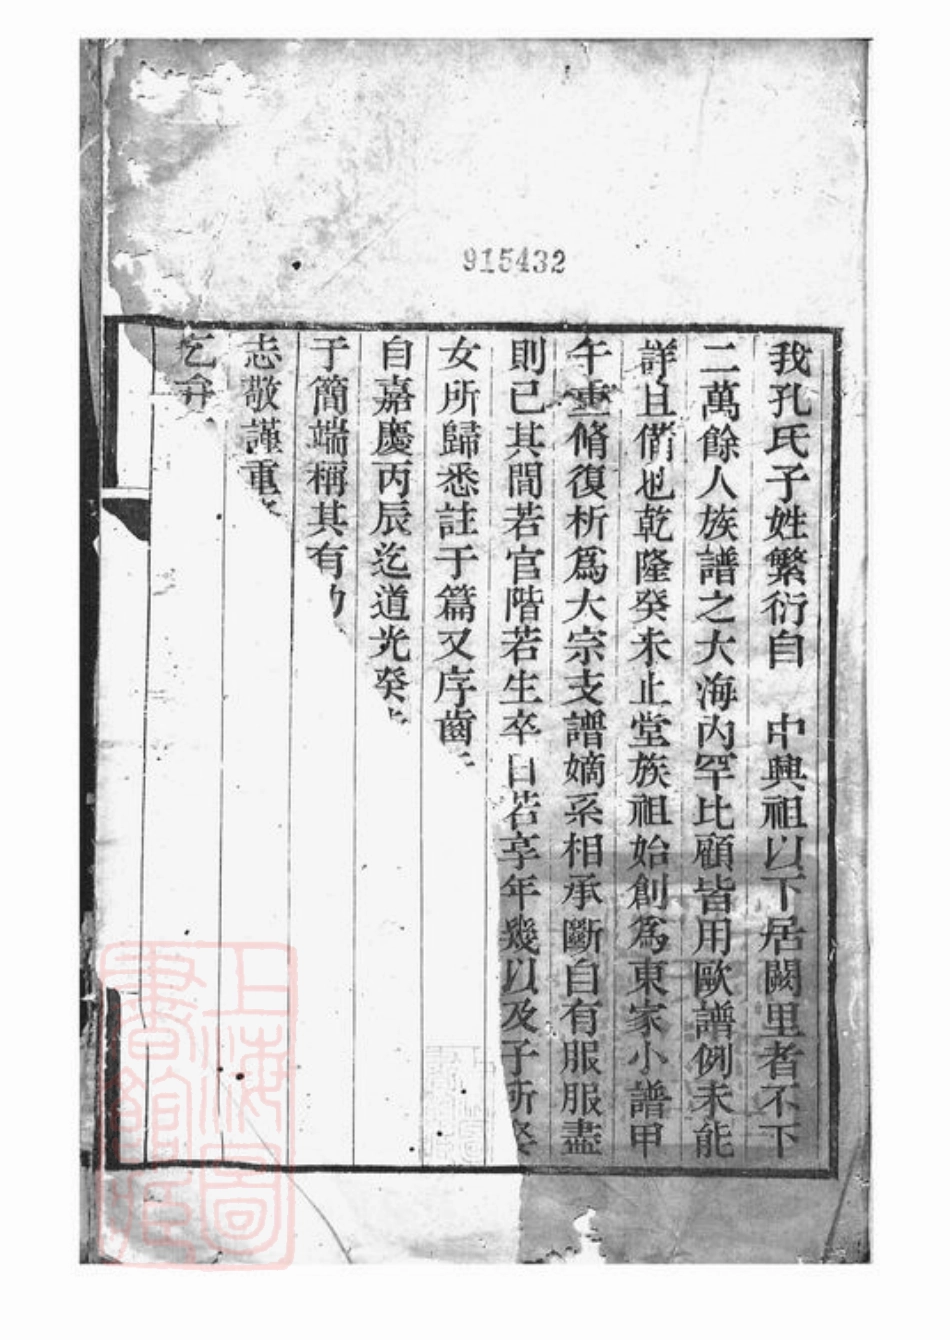 915432
我孔氏子姓繁衍自　中興祖以下居闕里者不下
二萬餘人族譜之大海內罕比顧皆用歐譜例未能
詳且備也乾隆癸未止堂族祖始創爲東家小譜甲
午重脩復析爲大宗支譜嫡系相承斷自有服服盡
則已其間若官階若生卒日若享年幾以及子所娶
女所歸悉註于篇又序齒
自嘉慶丙辰迄道光癸
于簡端稱其有功
志敬謹重
乞弁
上海圖書館藏